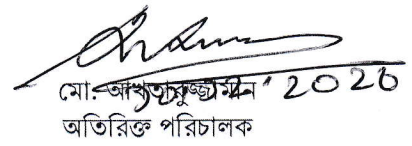 মো. আখতারুজ্জামান
2020
অতিরিক্ত পরিচালক